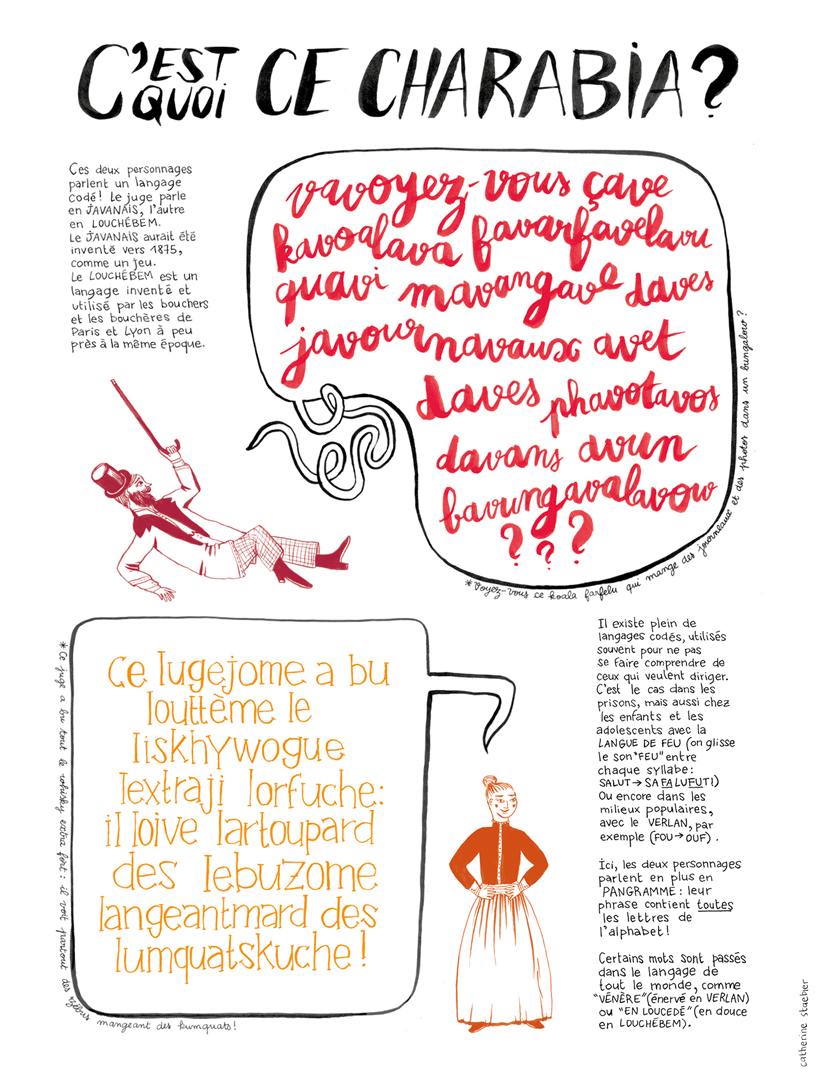 C'EST QUOI CE CHARABIA?
Ces deux personnages
parlent un langage
codé! Le juge parle
en JAVANAIS, l'autre
en LOUCHÉBEM.
Le JAVANAIS aurait été
inventé vers 1875,
comme un jeu.
Le LOUCHÉBEM est un
langage inventé et
utilisé par les bouchers
et les bouchères de
Paris et Lyon à peu
près à la même époque.
vavoyez-vous çave
kavoalava favarfavelavu
quavi mavangave daves
javournavaux avet
daves phavotavos
davans avun
bavungavalavow
? ? ?
*Voyez-vous ce koala farfelu qui mange des journeaux et des photos dans un bungalow?
Ce lugejome a bu
louttème le
liskhywogue
lextraji lorfuche:
il loive lartoupard
des lebuzome
langeantmard des
lumquatskuche!
*Ce juge a bu tout le whisky extra fort: il voit partout des zébus mangeant des kumquats!
Il existe plein de
langages codés, utilisés
souvent pour ne pas
se faire comprendre de
ceux qui veulent diriger.
C'est le cas dans les
prisons, mais aussi chez
les enfants et les
adolescents avec la
LANGUE DE FEU (on glisse
le son "FEU" entre
chaque syllabe:
SALUT→SAFALUFUT!)
Ou encore dans les
milieux populaires,
avec le VERLAN, par
exemple (FOU→OUF).
Ici, les deux personnages
parlent en plus en
PANGRAMME: leur
phrase contient toutes
les lettres de
l'alphabet!
Certains mots sont passés
dans le langage de
tout le monde, comme
"VÉNÈRE" (énervé en VERLAN)
ou "EN LOUCEDÉ" (en douce
en LOUCHÉBEM).
catherine staebler